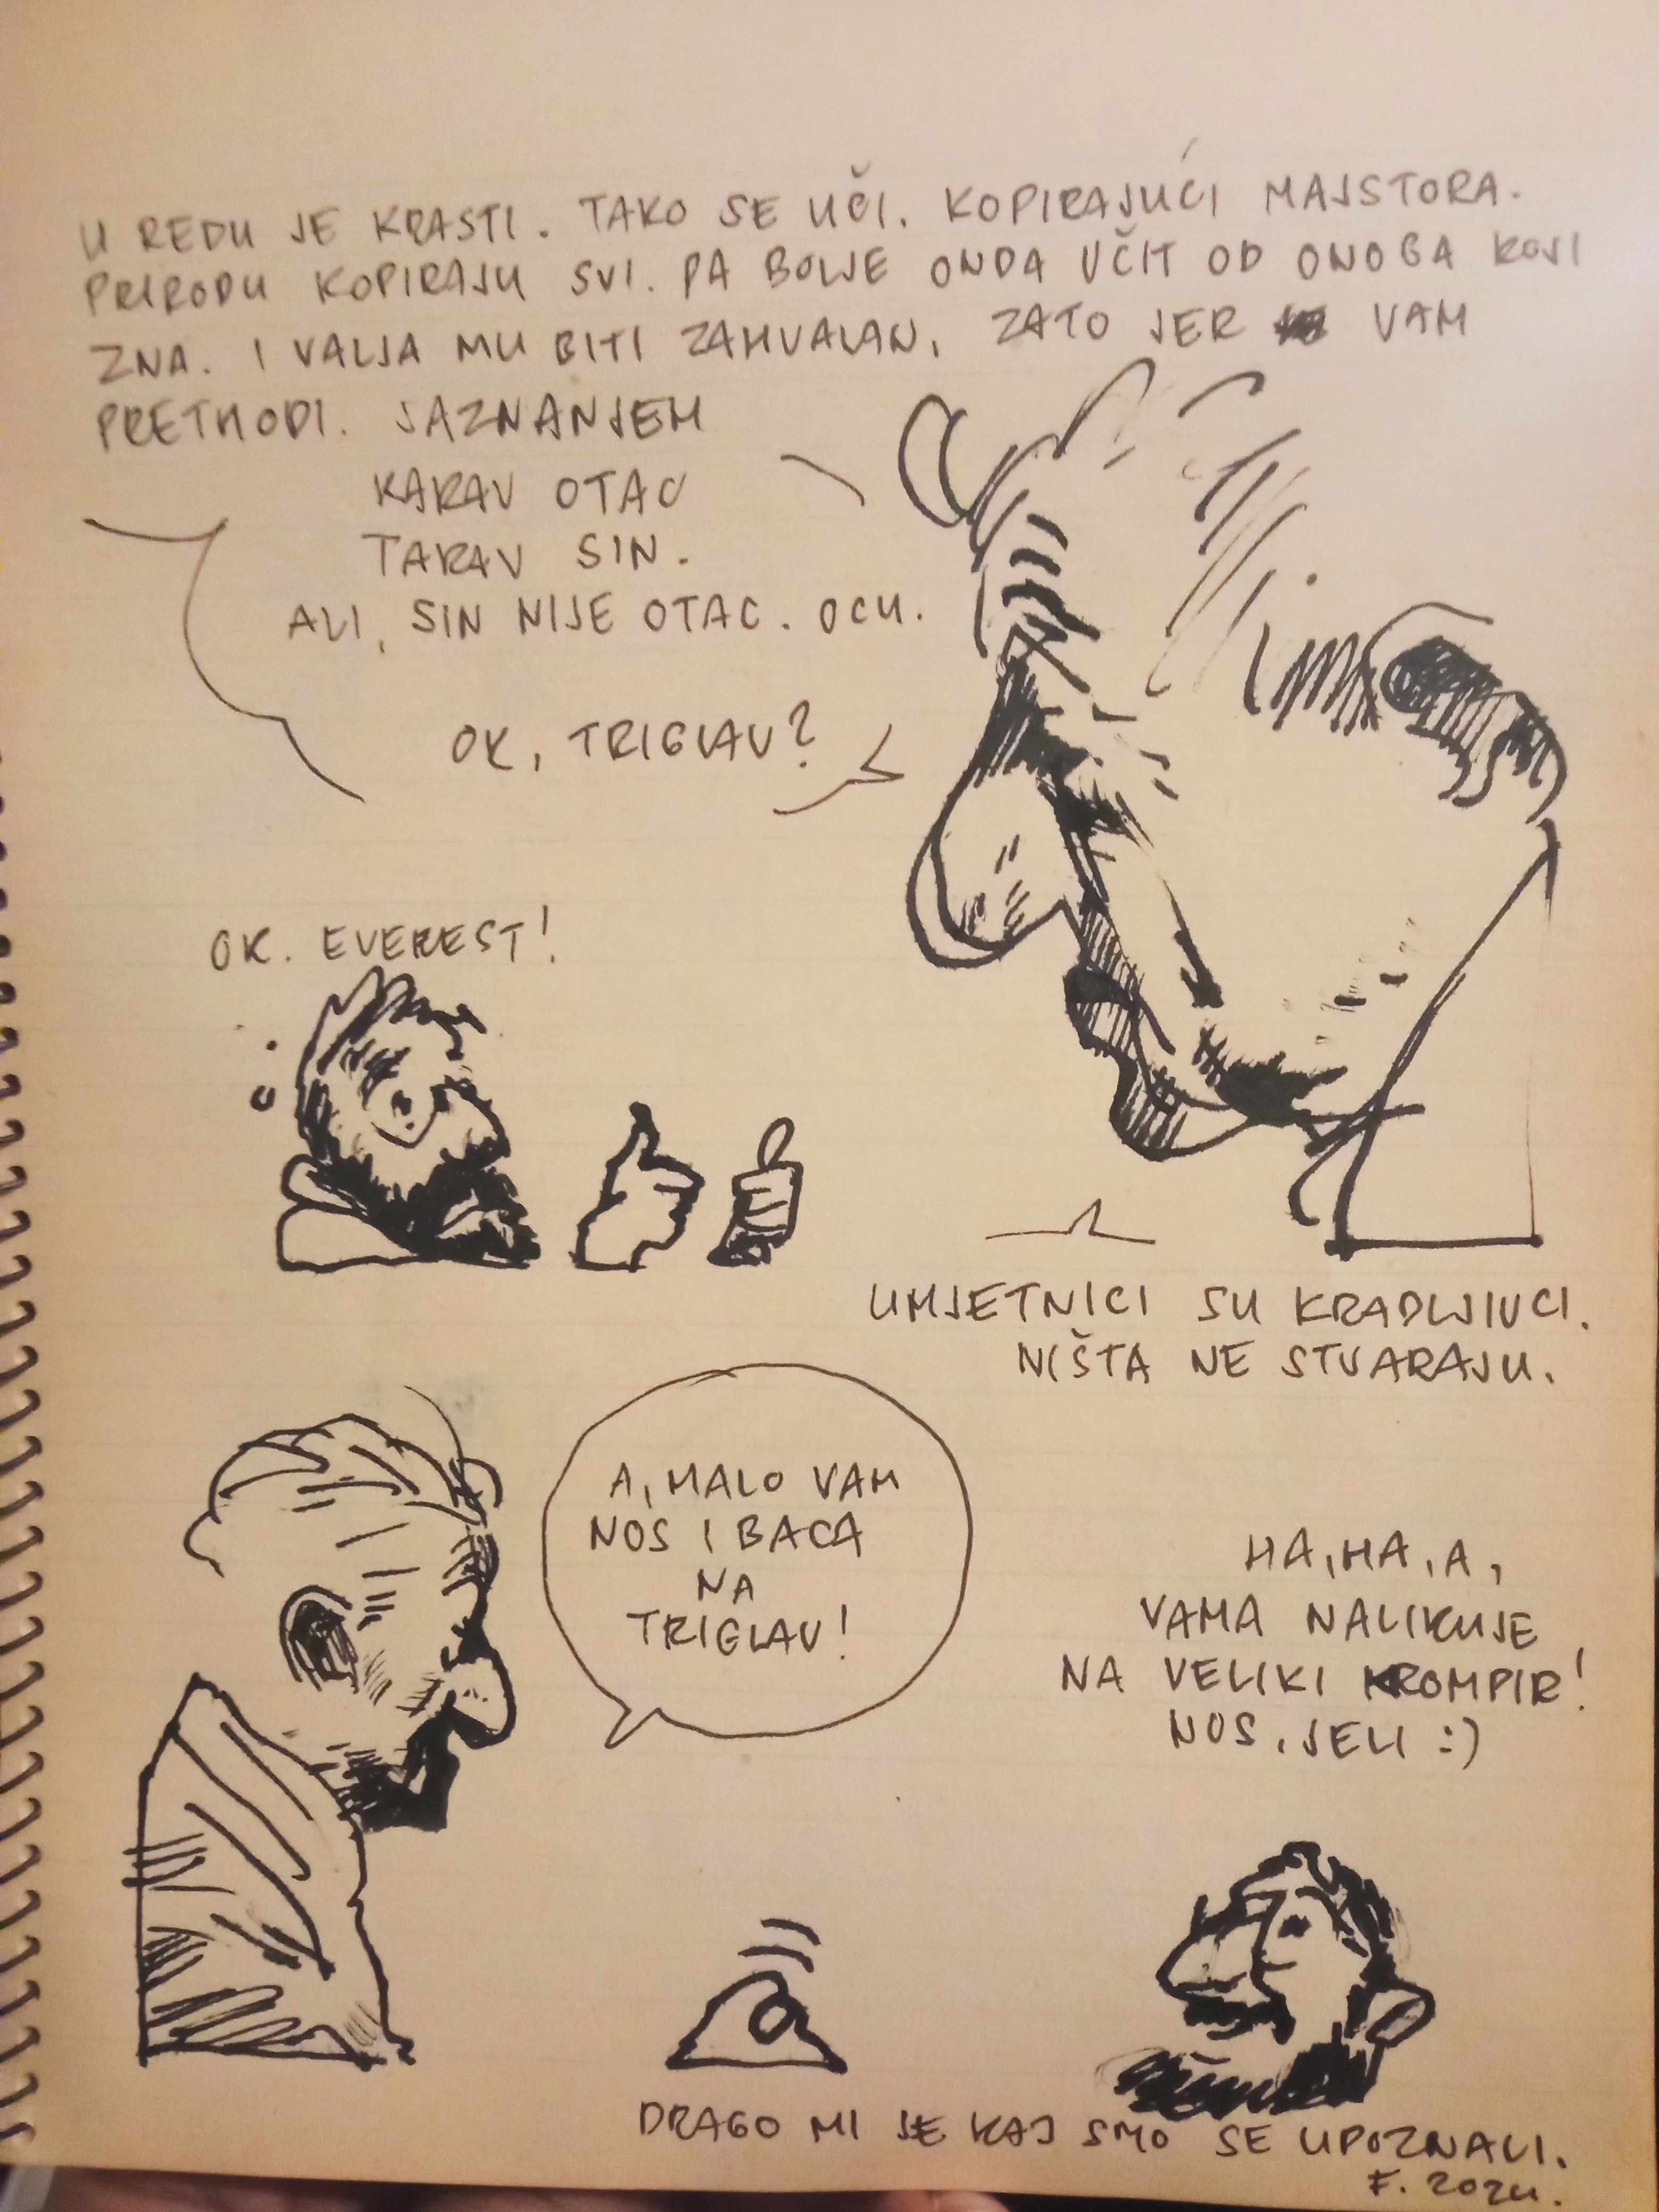 U REDU JE KRASTI. TAKO SE UČI. KOPIRAJUĆI MAJSTORA.
PRIRODU KOPIRAJU SVI. PA BOLJE ONDA UČIT OD ONOGA KOJI
ZNA. I VALJA MU BITI ZAHVALAN, ZATO JER VAM
PRETHODI. SAZNANJEM
KARAV OTAC
TARAV SIN.
ALI, SIN NIJE OTAC. OCU.
OK, TRIGLAV?
OK. EVEREST!
UMJETNICI SU KRADLJIVCI.
NIŠTA NE STVARAJU.
A, MALO VAM
NOS I BACA
NA
TRIGLAV!
HA, HA, A,
VAMA NALIKUJE
NA VELIKI KROMPIR!
NOS, JELI :)
DRAGO MI JE KAJ SMO SE UPOZNALI.
F. 2024.